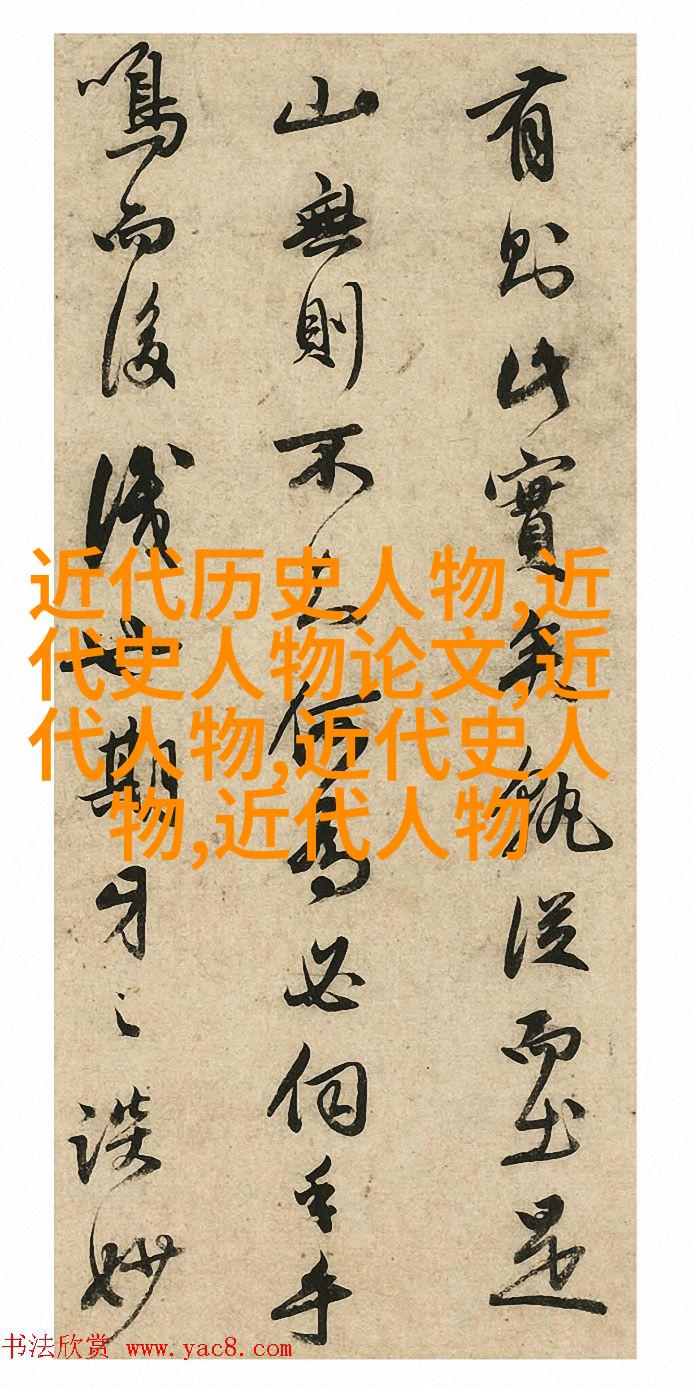 有則此實矣孰從而出是
山無則不何為必伺手
鳴而後識期牙之談妙
近代历史人物,近
代史人物论文,近
代人物,近代史人
物,近代人物
书法欣赏 www.yac8.com